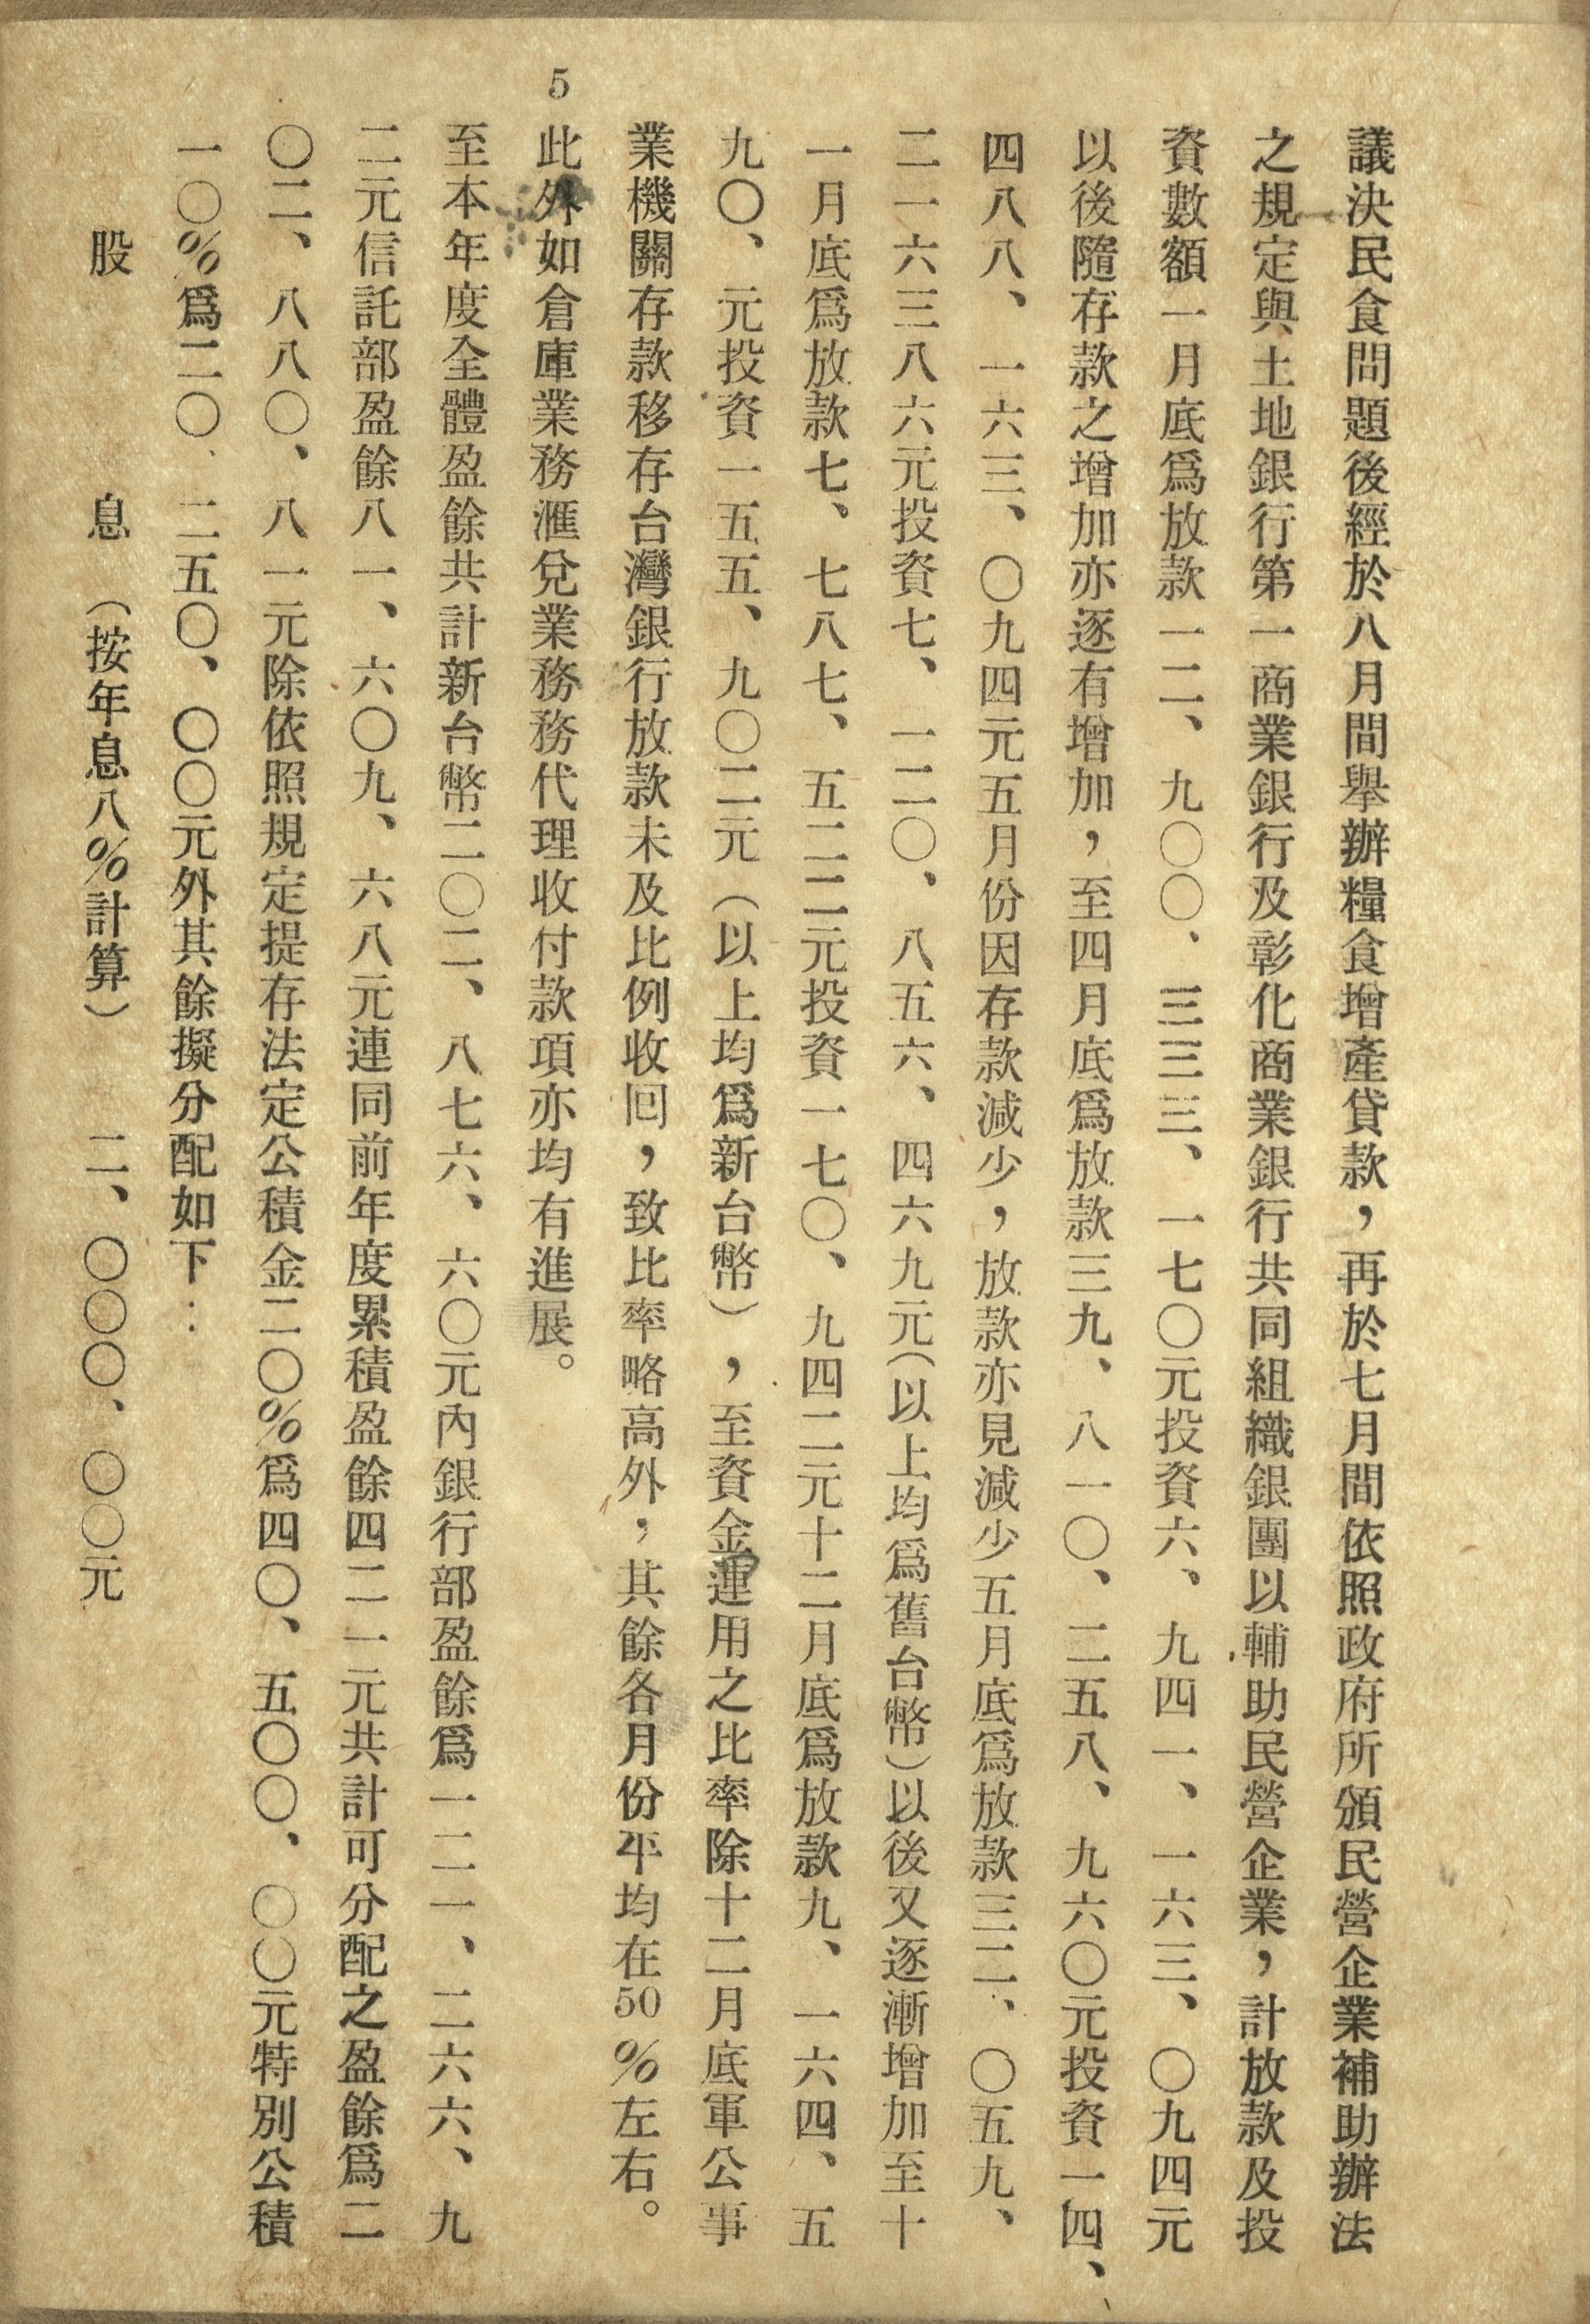 議決民食問題後經於八月間舉辦糧食增產貸款，再於七月間依照政府所頒民營企業補助辦法
之規定與土地銀行第一商業銀行及彰化商業銀行共同組織銀團以輔助民營企業，計放款及投
資數額一月底爲放款一二、九〇〇、三三三、一七〇元投資六、九四一、一六三、〇九四元
以後隨存款之增加亦逐有增加，至四月底爲放款三九、八一〇、二五八、九六〇元投資一四、
四八八、一六三、〇九四元五月份因存款減少，放款亦見減少五月底爲放款三二、〇五九、
二一六三八六元投資七、一二〇、八五六、四六九元（以上均爲舊台幣）以後又逐漸增加至十
一月底爲放款七、七八七、五二二元投資一七〇、九四二元十二月底爲放款九、一六四、五
九〇、元投資一五五、九〇二元（以上均爲新台幣），至資金運用之比率除十二月底軍公事
業機關存款移存台灣銀行放款未及比例收回，致比率略高外，其餘各月份平均在50％左右。
5 此外如倉庫業務滙兌業務務代理收付款項亦均有進展。
至本年度全體盈餘共計新台幣二〇二、八七六、六〇元內銀行部盈餘爲一二一、二六六、九
二元信託部盈餘八一、六〇九、六八元連同前年度累積盈餘四二一元共計可分配之盈餘爲二
〇二、八八〇、八一元除依照規定提存法定公積金二〇％爲四〇、五〇〇、〇〇元特別公積
一〇％爲二〇、二五〇、〇〇元外其餘擬分配如下：
股 息 （按年息八％計算） 二、〇〇〇、〇〇元